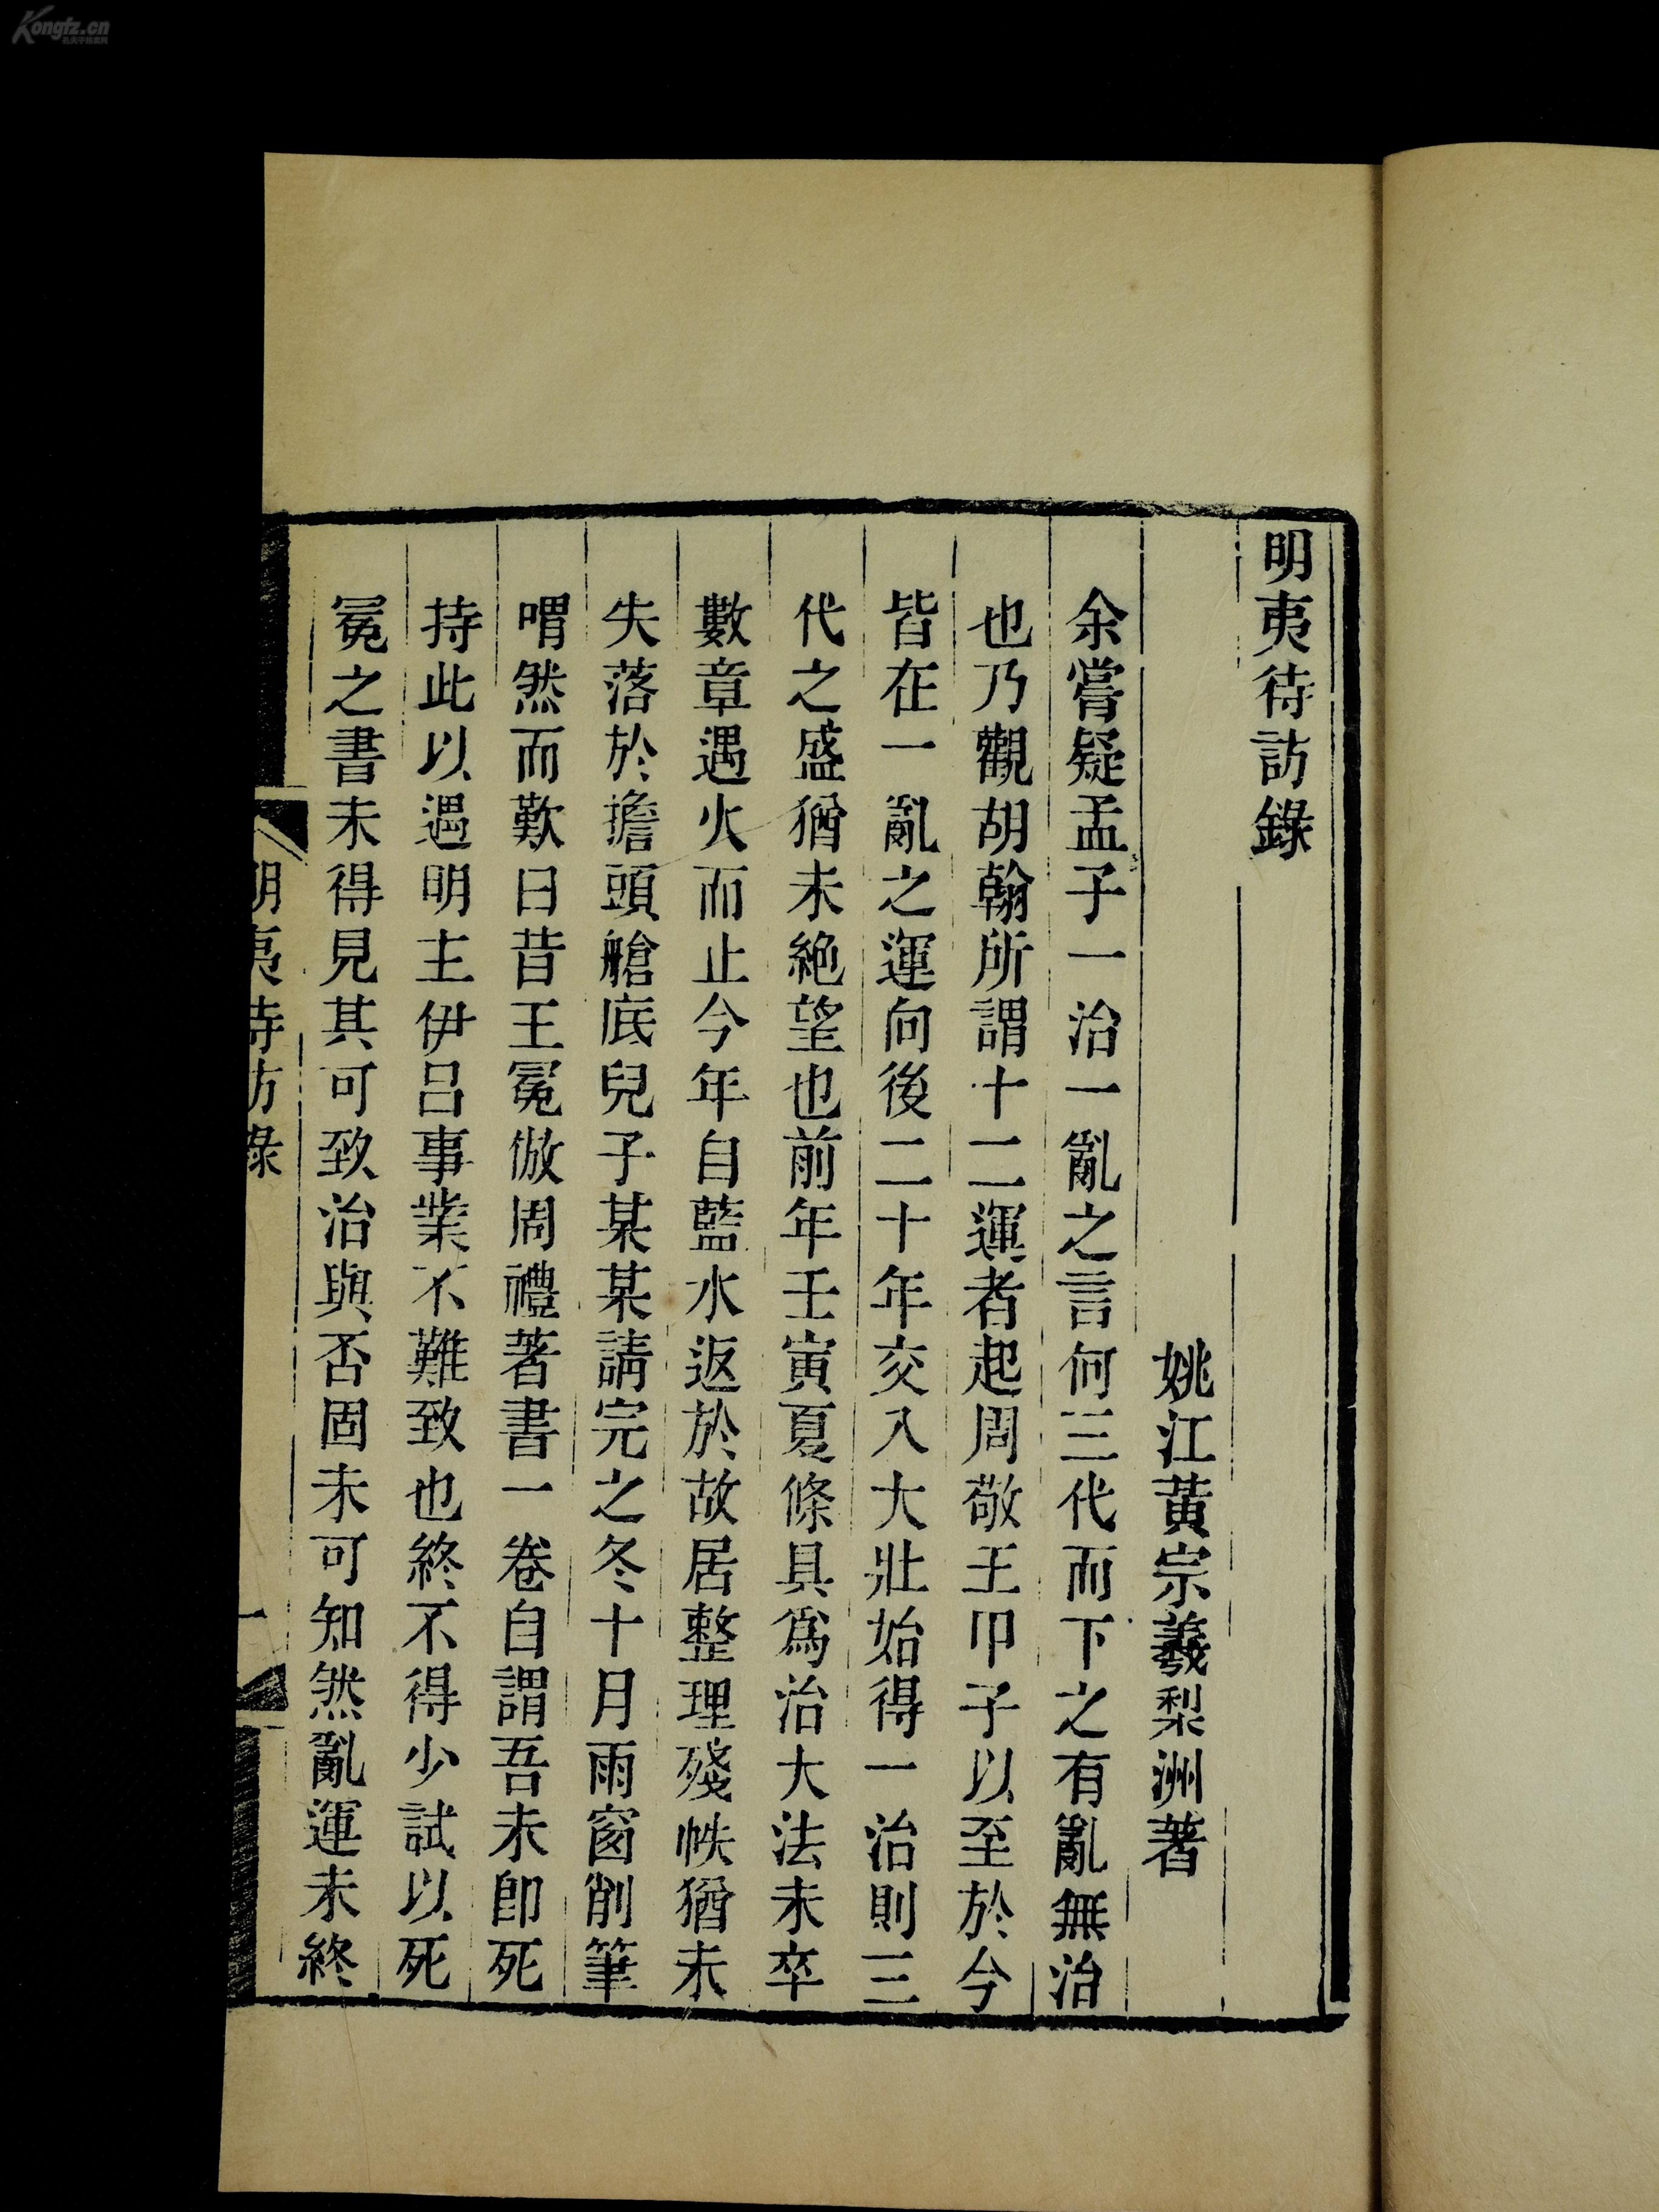 Kongfz.cn
明夷待訪錄
姚江黃宗羲梨洲著
余嘗疑孟子一治一亂之言何三代而下之有亂無治
也乃觀胡翰所謂十二運者起周敬王甲子以至於今
皆在一亂之運向後二十年交入大壯始得一治則三
代之盛猶未絶望也前年壬寅夏條具爲治大法未卒
數章遇火而止今年自藍水返於故居整理殘帙猶未
失落於擔頭艙底兒子某某請完之冬十月雨窗削筆
喟然而歎曰昔王冕倣周禮著書一卷自謂吾未卽死
持此以遇明主伊呂事業不難致也終不得少試以死
冕之書未得見其可致治與否固未可知然亂運未終
明夷待訪錄
一